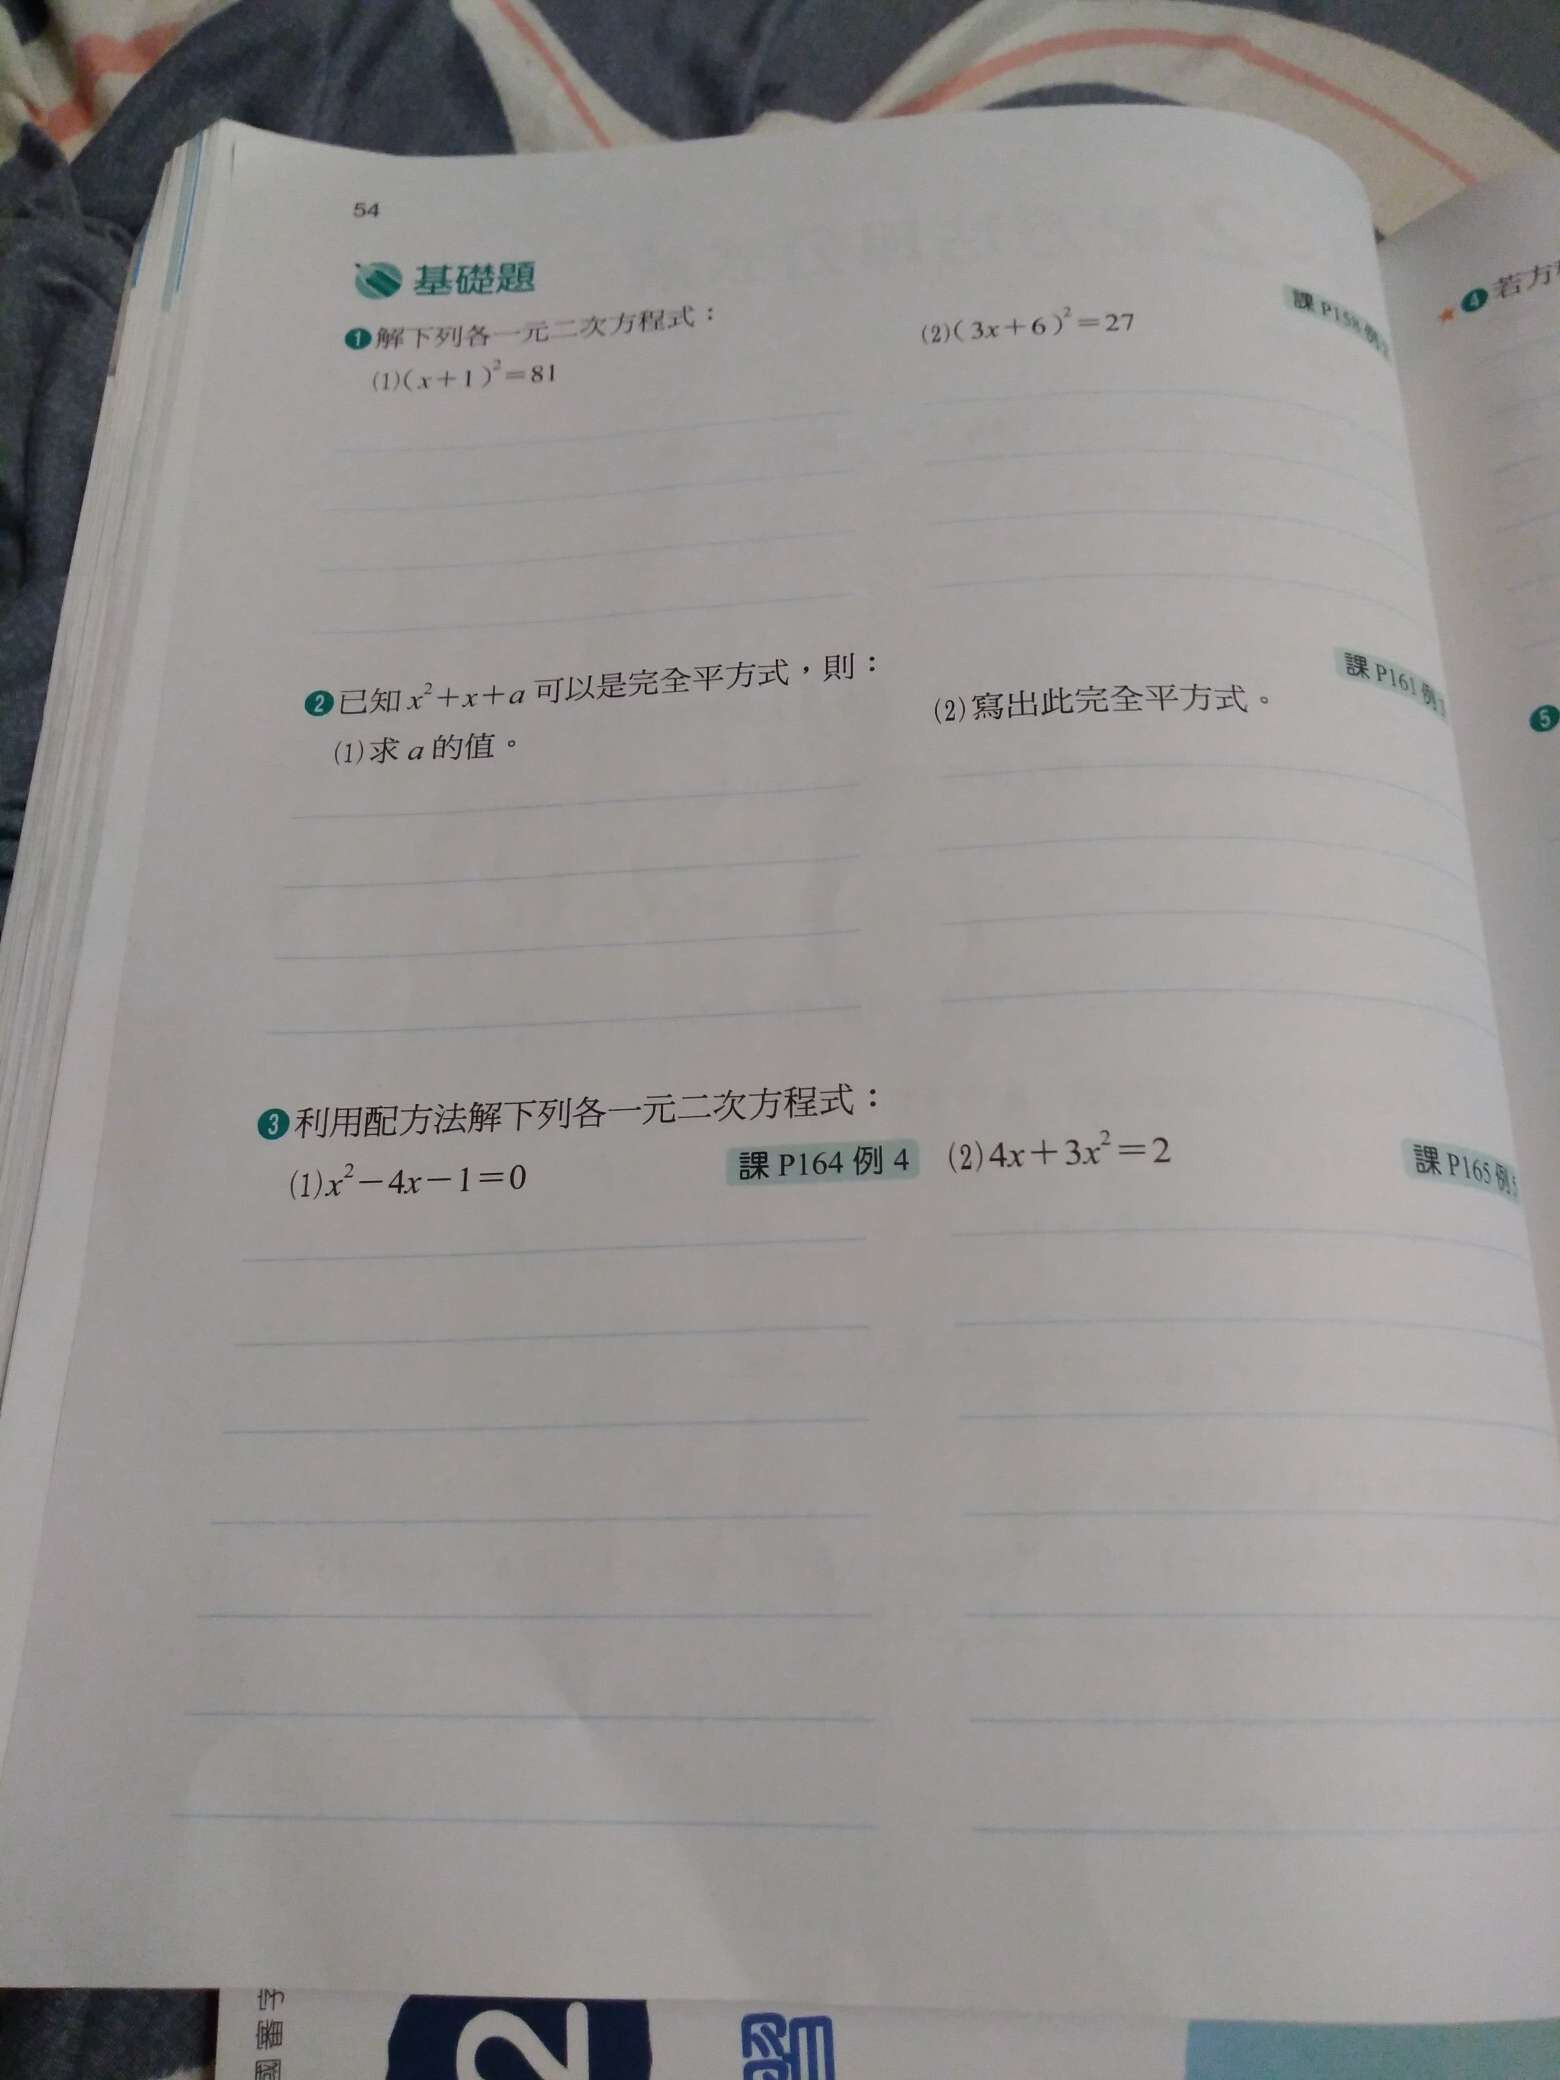 54
基礎題
❶解下列各一元二次方程式：
(1)(x+1)²=81
(2)(3x+6)²=27
課 P158 例
❷已知 x²+x+a 可以是完全平方式，則：
(1)求 a 的值。
(2)寫出此完全平方式。
課 P161 例3
❸利用配方法解下列各一元二次方程式：
(1)x²−4x−1=0
課 P164 例 4
(2)4x+3x²=2
課 P165 例5
★❹若方
❺
2
習